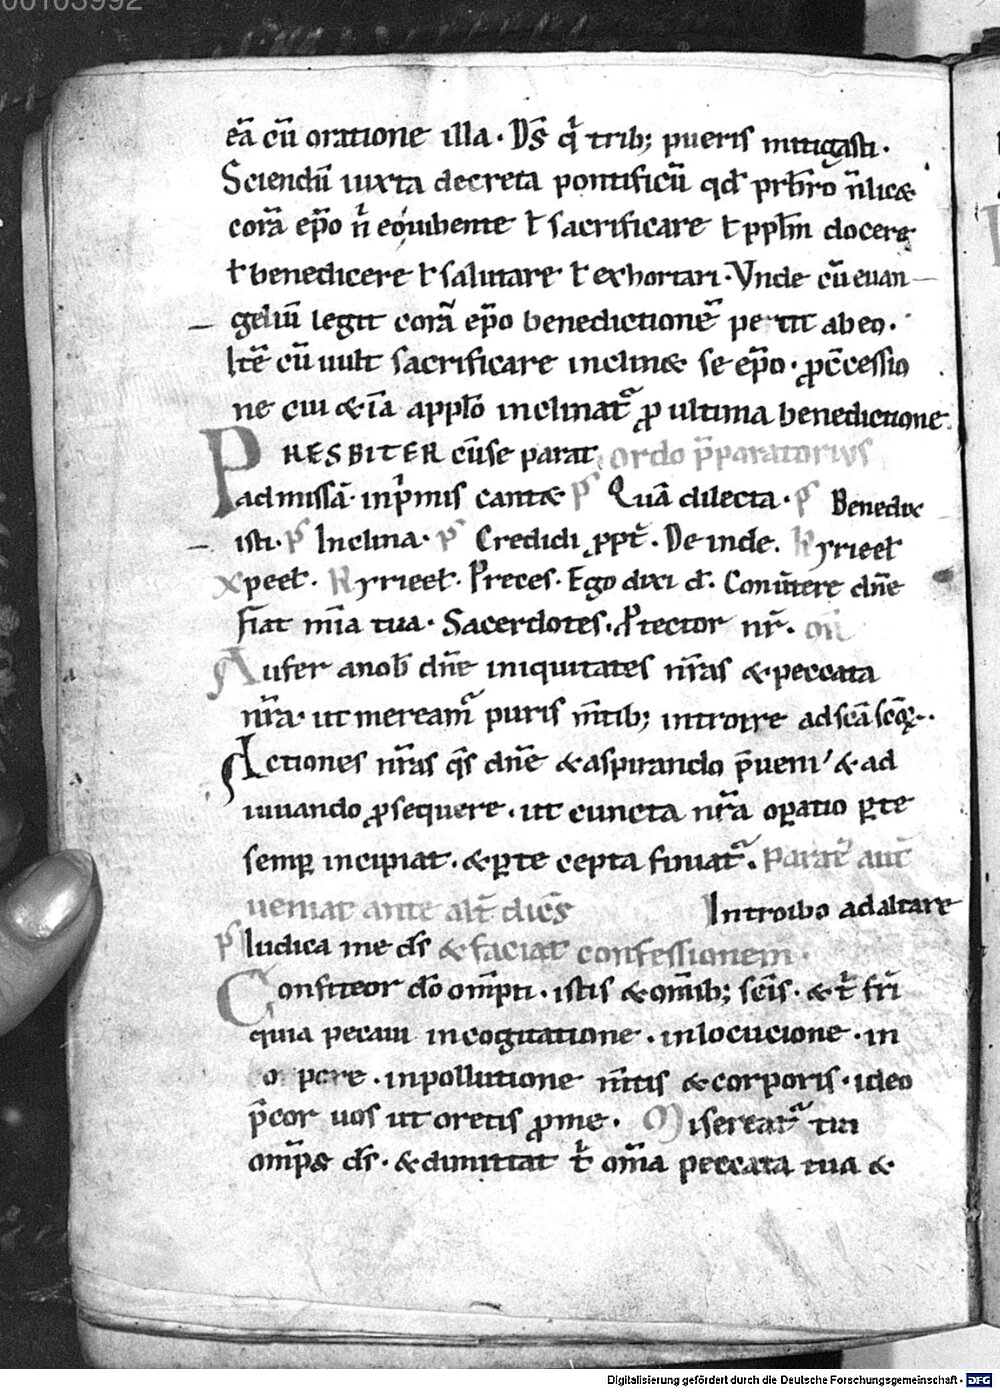 00103992
eā cū oratione illa · D̄s q̄ trib; pueris mitigasti ·
Sciendū iuxta decreta pontificū qd̄ prb̄ro n̄ lic&
corā ep̄o n̄ iubente ł sacrificare ł ppl̄m docere
ł benedicere ł salutare ł exhortari · Vnde cū euan–
geliū legit corā ep̄o benedictionē petit ab eo ·
Itē cū uult sacrificare inclin& se ep̄o · ꝓcessio
ne cui & iā appl̄o inclinat᷑ ꝓ ultima benedictione ·
PRESBITER cū se parat ordo p̄paratorius
ad missā · inp̄mis cant& p̄s Quā dilecta · p̄s Benedix
isti · p̄s Inclina · p̄s Credidi ꝓpt̄ · Deinde · Kyrieeł
Xpeeł · Kyrieeł · Preces · Ego dixi d̄ · Conūtere dn̄e
Fiat mīa tua · Sacerdotes · Ptector nr̄ · or̄
Aufer a nob̄ dn̄e iniquitates nr̄as & peccata
nr̄a · ut meream᷑ puris m̄tib; introire ad scā scōꝝ ·
Actiones nr̄as q̄s dn̄e & aspirando p̄ueni & ad
iuuando ꝓsequere · ut cuncta nr̄a oꝑatio ꝑ te
semꝑ incipiat · & ꝑ te cepta finiat᷑ · Parat᷑ aut̄
ueniat ante alt̄ dicēs Introibo ad altare
p̄s Iudica me ds̄ & faciat confessionem ·
Confiteor dō om̄pti · istis & om̄ib; scīs · & t̄ fr̄i
quia peccaui in cogitatione · in locucione · in
opere · in pollutione m̄tis & corporis · ideo
p̄cor uos ut oretis ꝓ me · Misereat᷑ tui
om̄ps ds̄ · & dimittat t̄ om̄a peccata tua &
Digitalisierung gefördert durch die Deutsche Forschungsgemeinschaft - DFG